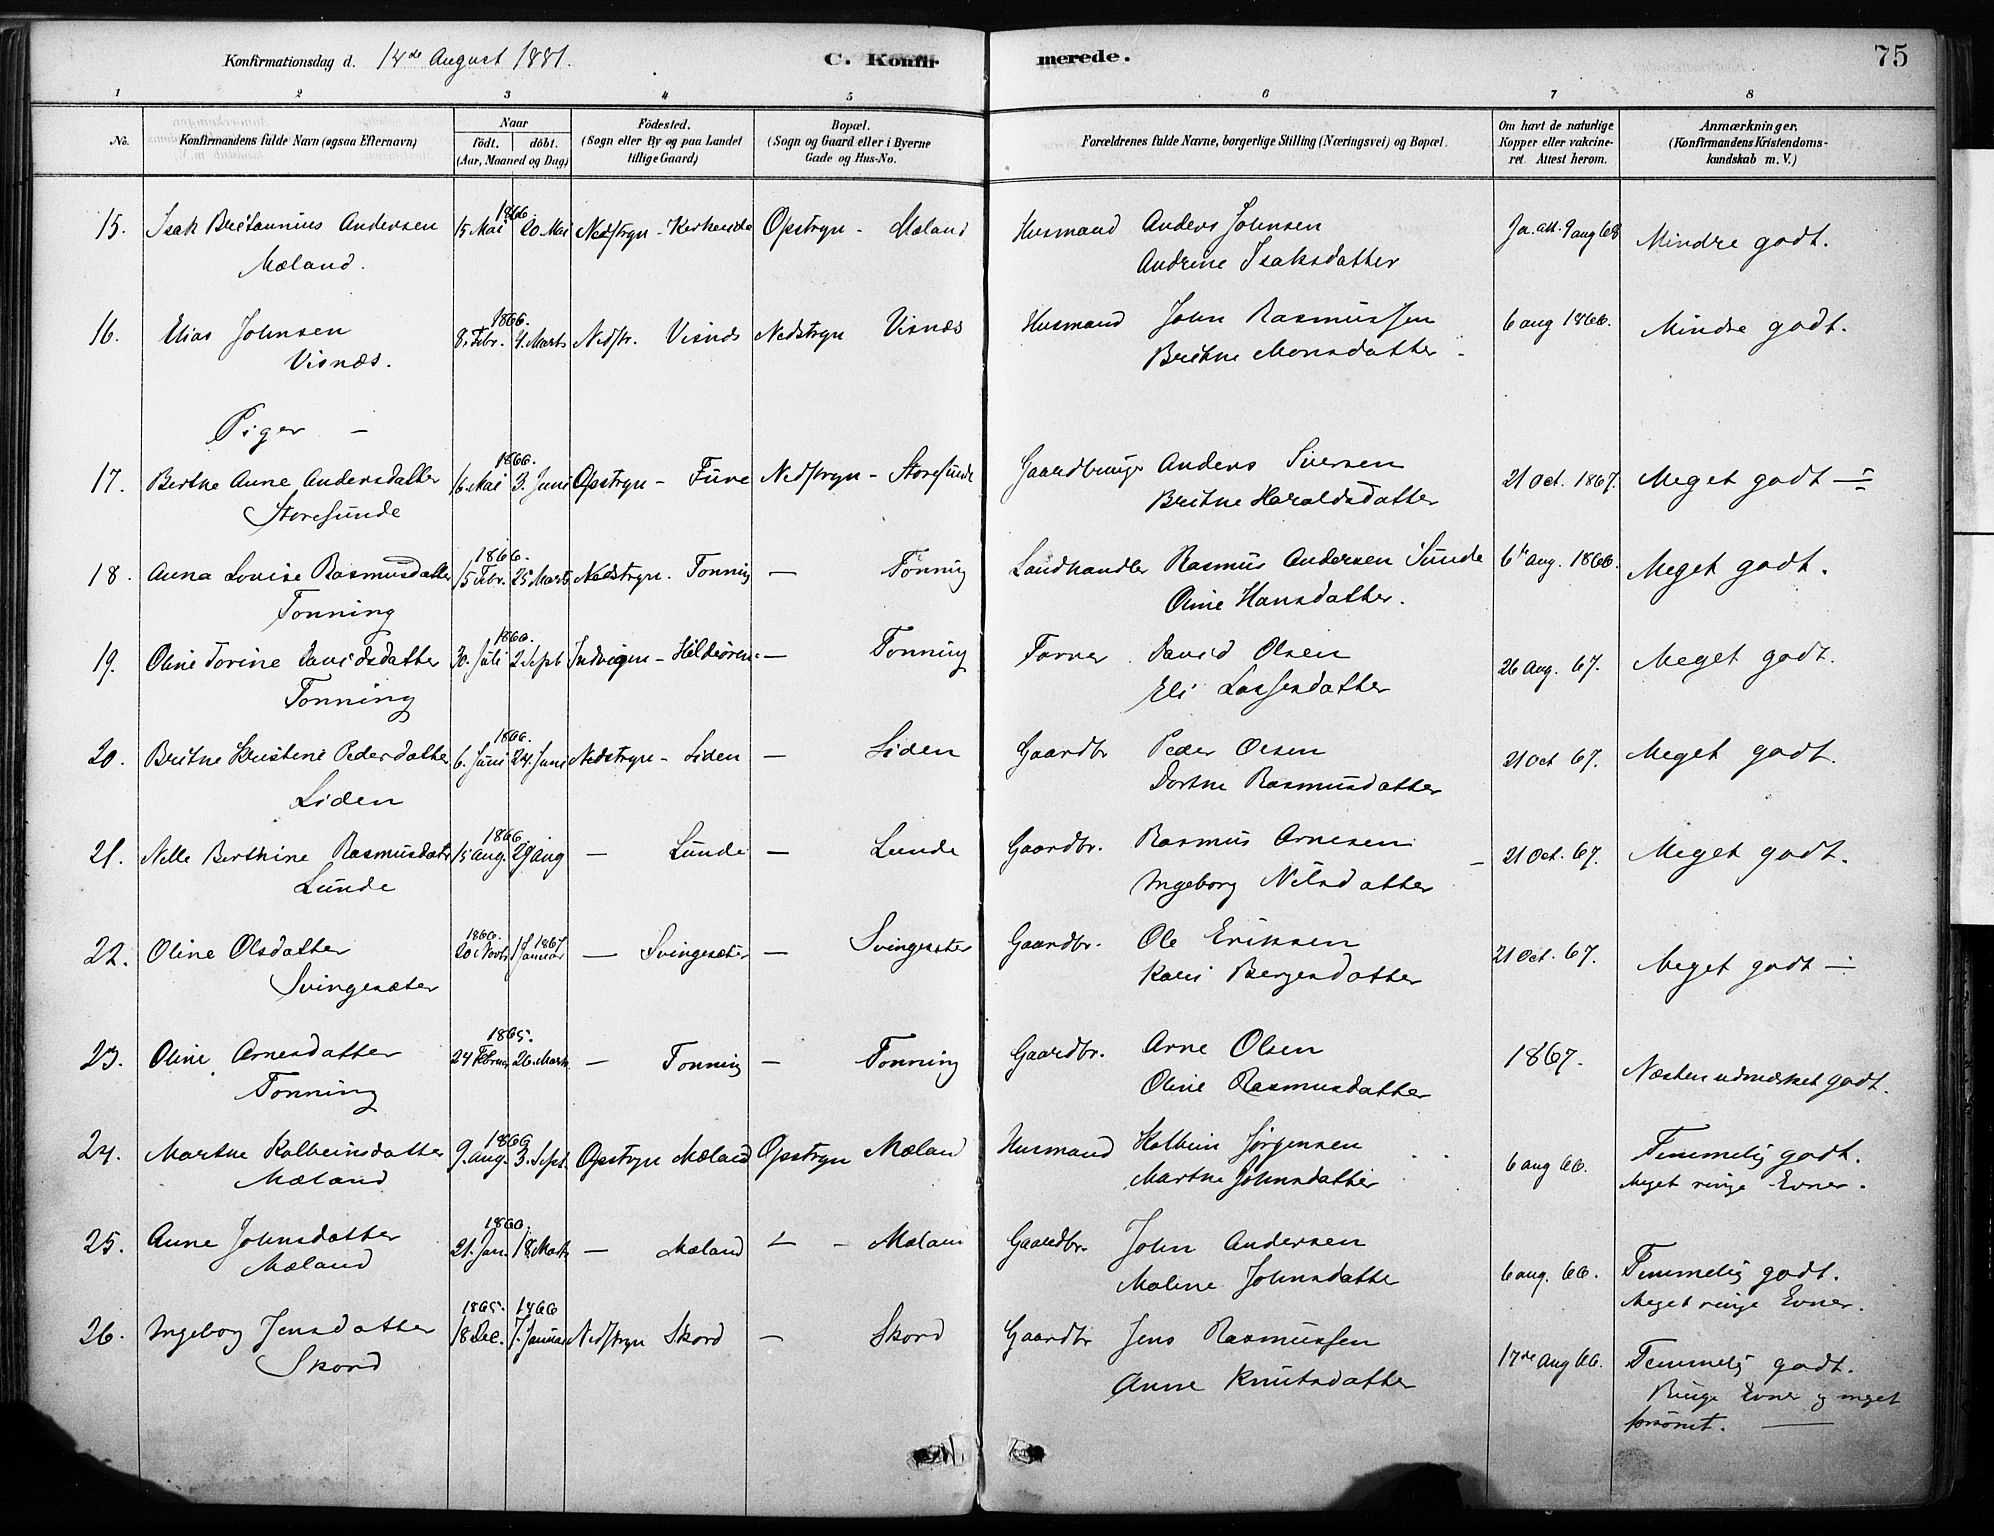 Konfirmationsdag d. 14de August 1881.
C. Konfirmerede.
75
1 2 3 4 5 6 7 8
No.
Konfirmandens fulde Navn (ogsaa Efternavn)
Naar
födt. döbt.
(Aar, Maaned og Dag)
Födested.
(Sogn eller By og paa Landet
tillige Gaard)
Bopæl.
(Sogn og Gaard eller i Byerne
Gade og Hus-No.
Forældrenes fulde Navne, borgerlige Stilling (Næringsvei) og Bopæl.
Om havt de naturlige
Kopper eller vakcine-
ret. Attest herom.
Anmærkninger,
(Konfirmandens Kristendoms-
kundskab m. V.)
1866.
15. Isak Britannius Andersen 15 Mai 20 Mai Nedstryn - Opstryn - Mæland Husmand Anders Johnsen Ja. att. 9 aug 68 Mindre godt.
Mæland. Andrine Isaksdatter
1866.
16. Elias Johnsen 8. Febr. 4. Marts Nedstr. Visnæs Nedstryn Visnæs Husmand John Rasmussen 6 aug 1866. Mindre godt.
Visnæs. Brithe Monsdatter -
Piger -
1866.
17. Berthe Anne Andersdatter 16. Mai 3. Juni Opstryn - Fure Nedstryn - Storesunde Gaardbruger Anders Siversen 21 Oct. 1867. Meget godt -
Storesunde Brithe Haraldsdatter
1866.
18. Anna Lovise Rasmusdatter 15 Febr. 25 Marts Nedstryn. Tonning - Tonning Landhandler Rasmus Andersen Sunde 6te Aug. 1866. Meget godt.
Tonning Oline Hansdatter.
1866.
19. Oline Torine Davidsdatter 30. Juli 2 Sept Indvigen - Hildeören - - Tonning Farver David Olsen 26 Aug. 67. Meget godt.
Tonning Eli Lassesdatter
1866.
20. Brithe Kristine Pedersdatter 6. Juni 24. Juni Nedstryn - Liden - Liden Gaardbr Peder Olsen 21 Oct 67. Meget godt.
Liden Dorthe Rasmusdatter
1866.
21. Nille Berthine Rasmusdatr 15 Aug. 29 Aug - Lunde - Lunde Gaardbr. Rasmus Arnesen - 21 Oct. 67. Meget godt.
Lunde Ingeborg Nilsdatter
1866. 1867
22. Oline Olsdatter 20 Novbr 1 Januar - Svingesæter - Svingesæter Gaardbr. Ole Eriksen 21 Oct. 67. Meget godt -
Svingesæter Kari Bergesdatter
1865.
23. Oline Arnesdatter 24 Februar 26. Marts - Tonning - Tonning Gaardbr. Arne Olsen 1867. Næsten udmerket godt.
Tonning Oline Rasmusdatter
1866
24. Marthe Kolbeinsdatter 9. Aug. 3. Sept. Opstryn Mæland Opstryn Mæland Husmand Kolbein Jørgensen 6 aug 66. Temmelig godt.
Mæland Marthe Johnsdatter Meget ringe Evner.
1866.
25. Anne Johnsdatter 21. Jan. 18. Marts - Mæland - Mæland Gaardbr. John Andersen 6 aug. 66. Temmelig godt.
Mæland Maline Johnsdatter Meget ringe Evner.
1865. 1866
26. Ingeborg Jensdatter 18 Dec. 7. Januar Nedstryn Skord - Skord Gaardbr Jens Rasmussen 17de Aug 66. Temmelig godt.
Skord Anne Knutsdatter Ringe Evner og meget